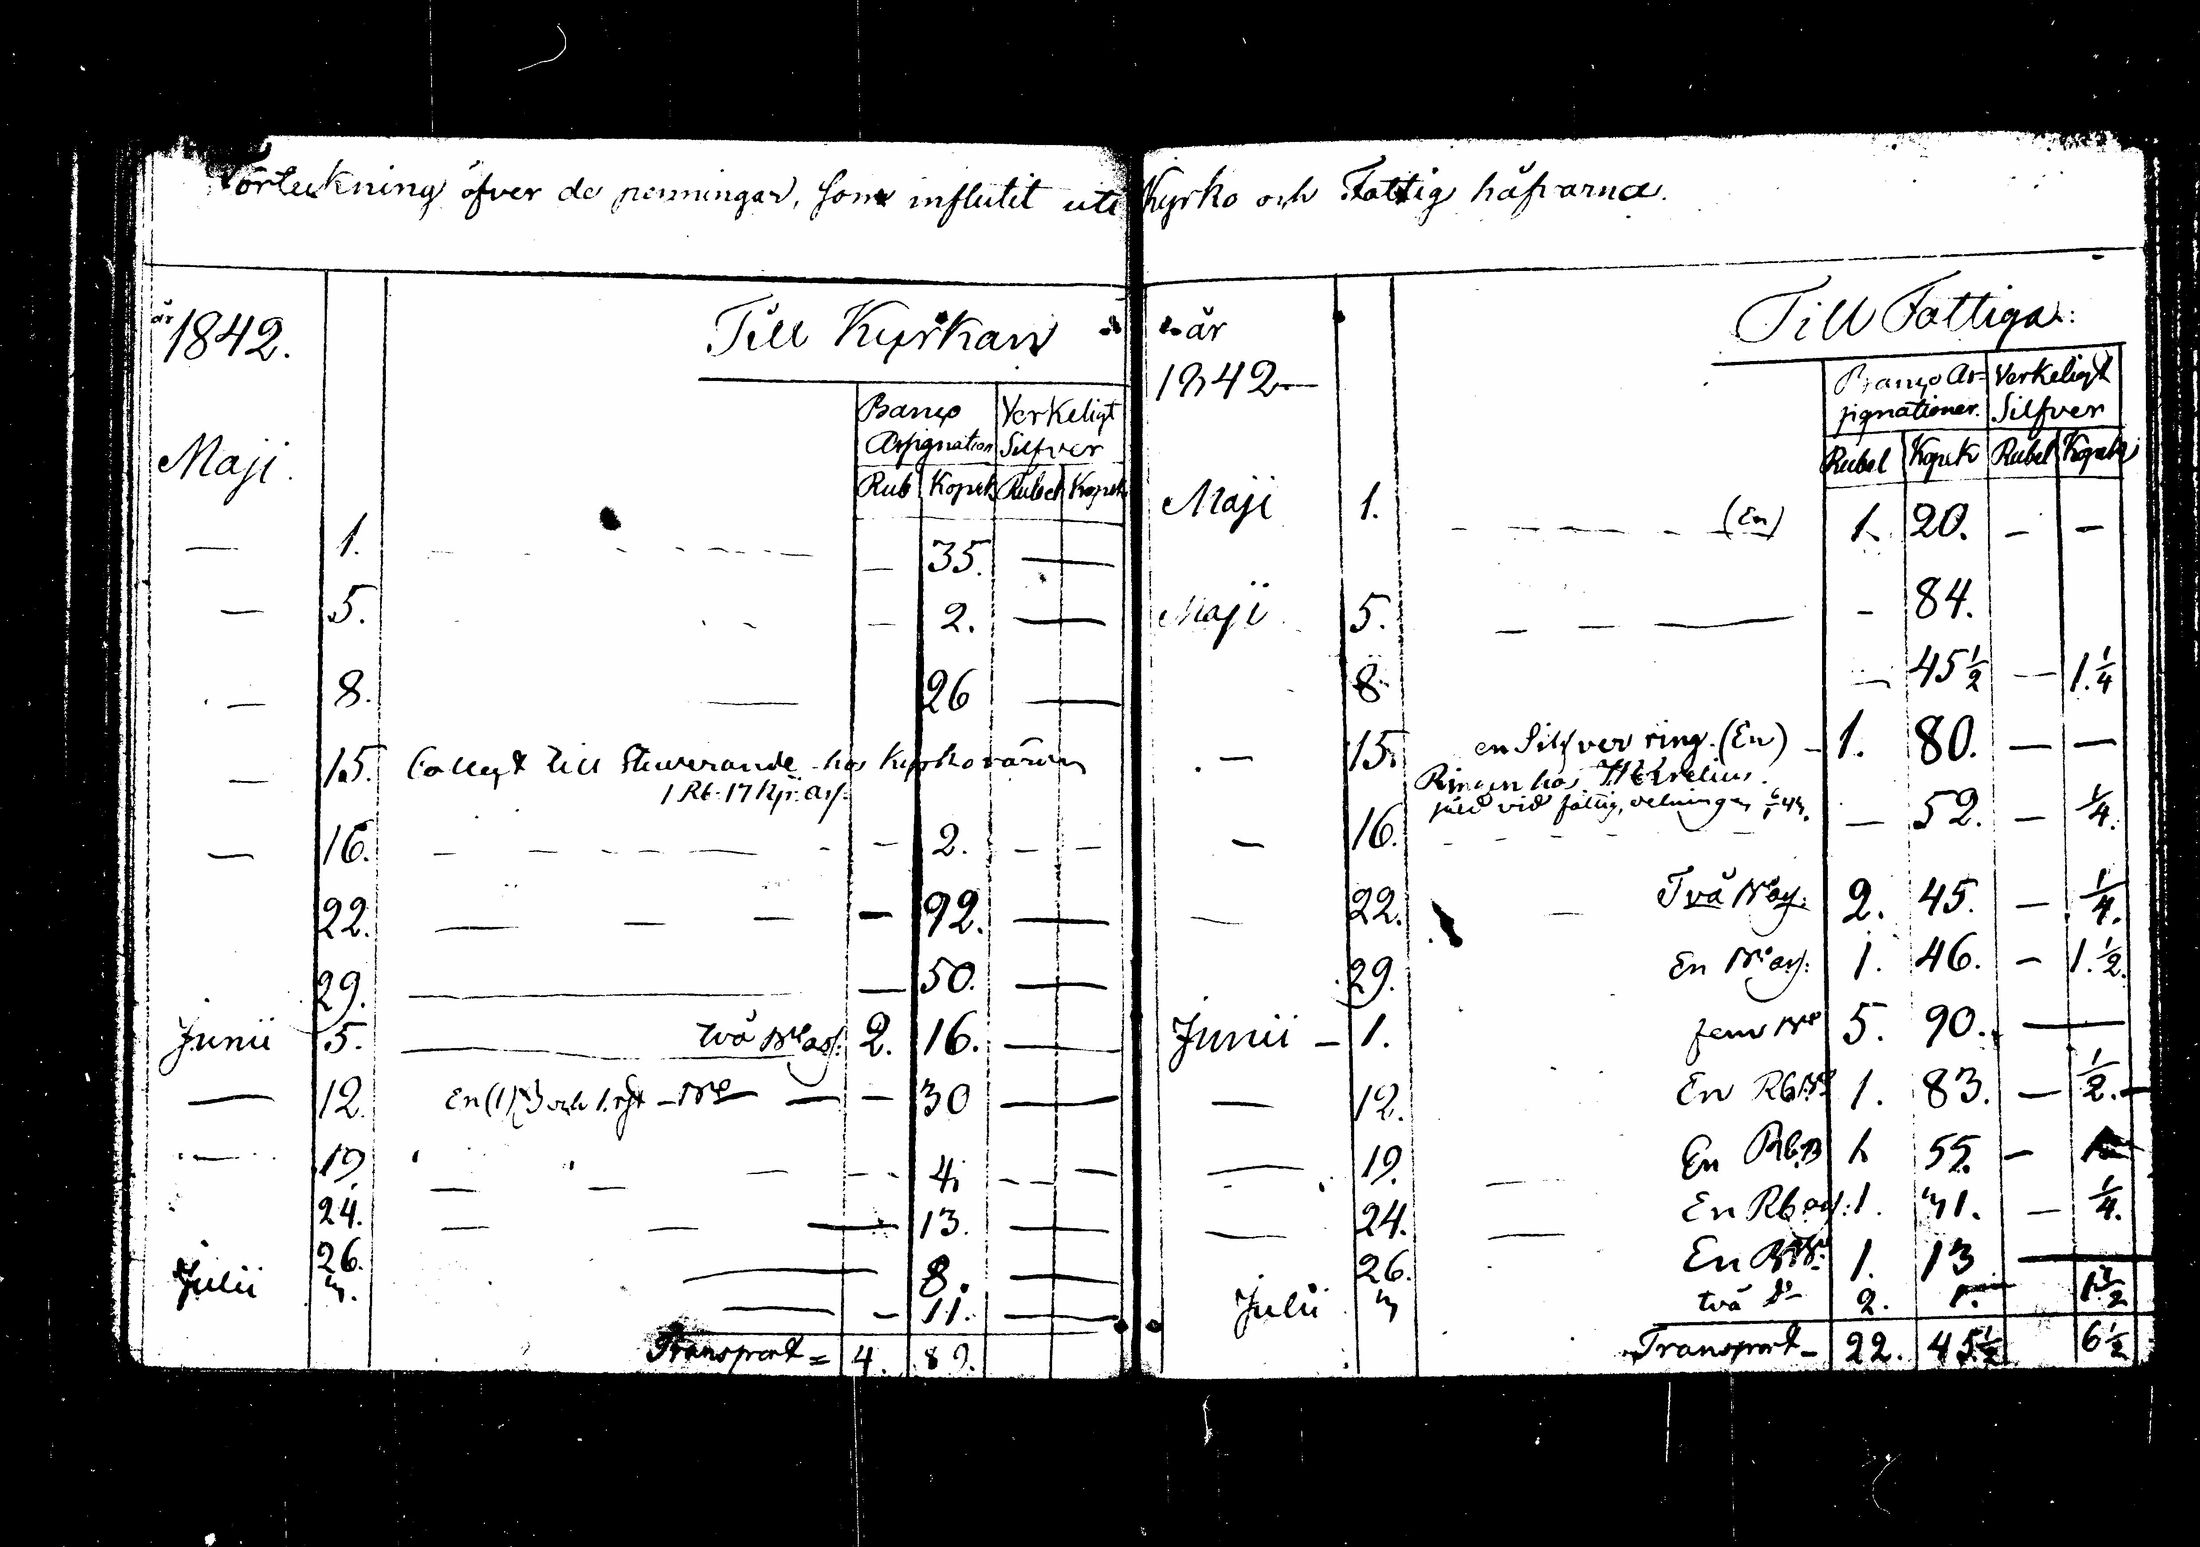 Förteckning öfver de penningar, som influtit uti Kyrko och Fattig håfvarna.
år
1842.
Till Kyrkan
Banco Assignation Verkeligt Silfver
Rub Kopek Rubel Kopek
Maji.
— 1. — 35. —
— 5. — 2. —
— 8. 26 —
— 15. Collegt till Studerande hos Kyrkovärden
1 Rb. 17 Kp. ass.
— 16. — 2. — —
22. — 92. —
29. — 50. —
Junii 5. två Rb ass. 2. 16. —
— 12. En (1) och — 30 —
— 19. — 4. —
24. — 13. —
26. 8. —
Julii 3. — 11. —
Transport = 4. 89.
år
1842—
Till Fattiga:
Banco As-signationer. Verkeligt Silfver
Rubel Kopek Rubel Kopek
Maji 1. (En) 1. 20. — —
Maji 5. — 84.
8. — 45 1/2 — 1. 1/4
— 15. en Silfver ring. (En) — 1. 80. — —
Ringen hos
såld vid fattig
— 16. — 52. — 1/4.
— 22. Två Rb ass. 2. 45. — 1/4.
29. En Rb ass. 1. 46. — 1. 1/2.
Junii — 1. fem Rb 5. 90. —
— 12. En Rb 1. 83. — 1/2. —
— 19. En Rb. B 1. 55. —
— 24. En Rb ass. 1. 31. — 1/4.
26. En 1. 13 —
Julii 3 två do 2. 1. 1 1/2
Transport — 22. 45 1/2 6 1/2